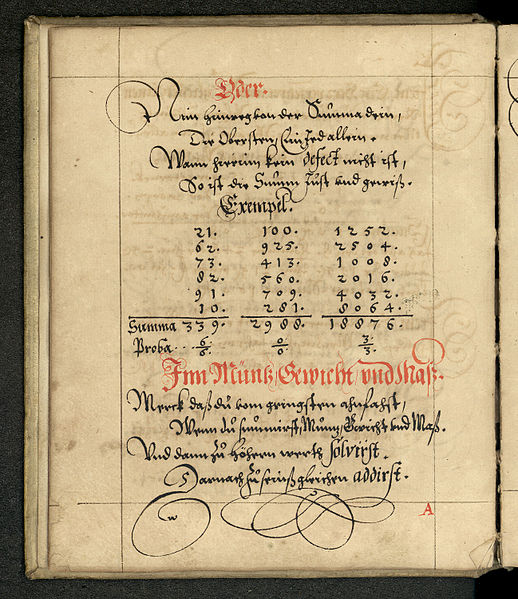 Oder.
Nim hinweg von der Summa dein,
Die Obersten, Ein Jed allein.
Wann hierinn kein defect nicht ist,
So ist die Summ Just vnd gewiß.
Exempel.
21. 100. 1252.
62. 925. 2504.
73. 413. 1008.
82. 560. 2016.
91. 709. 4032.
10. 281. 8064.
Summa 339. 2988. 18876.
Proba... 6/6. 0/0. 3/3.
Inn Müntz, Gewicht, vnd Maß.
Merck daß du vom gringsten ahnfahst,
Wenn du summirst, Müntz, Gwicht vnd Maß.
Vnd dann zu höhern werth solvirst.
Darnach zu seinßgleichen addirst.
A